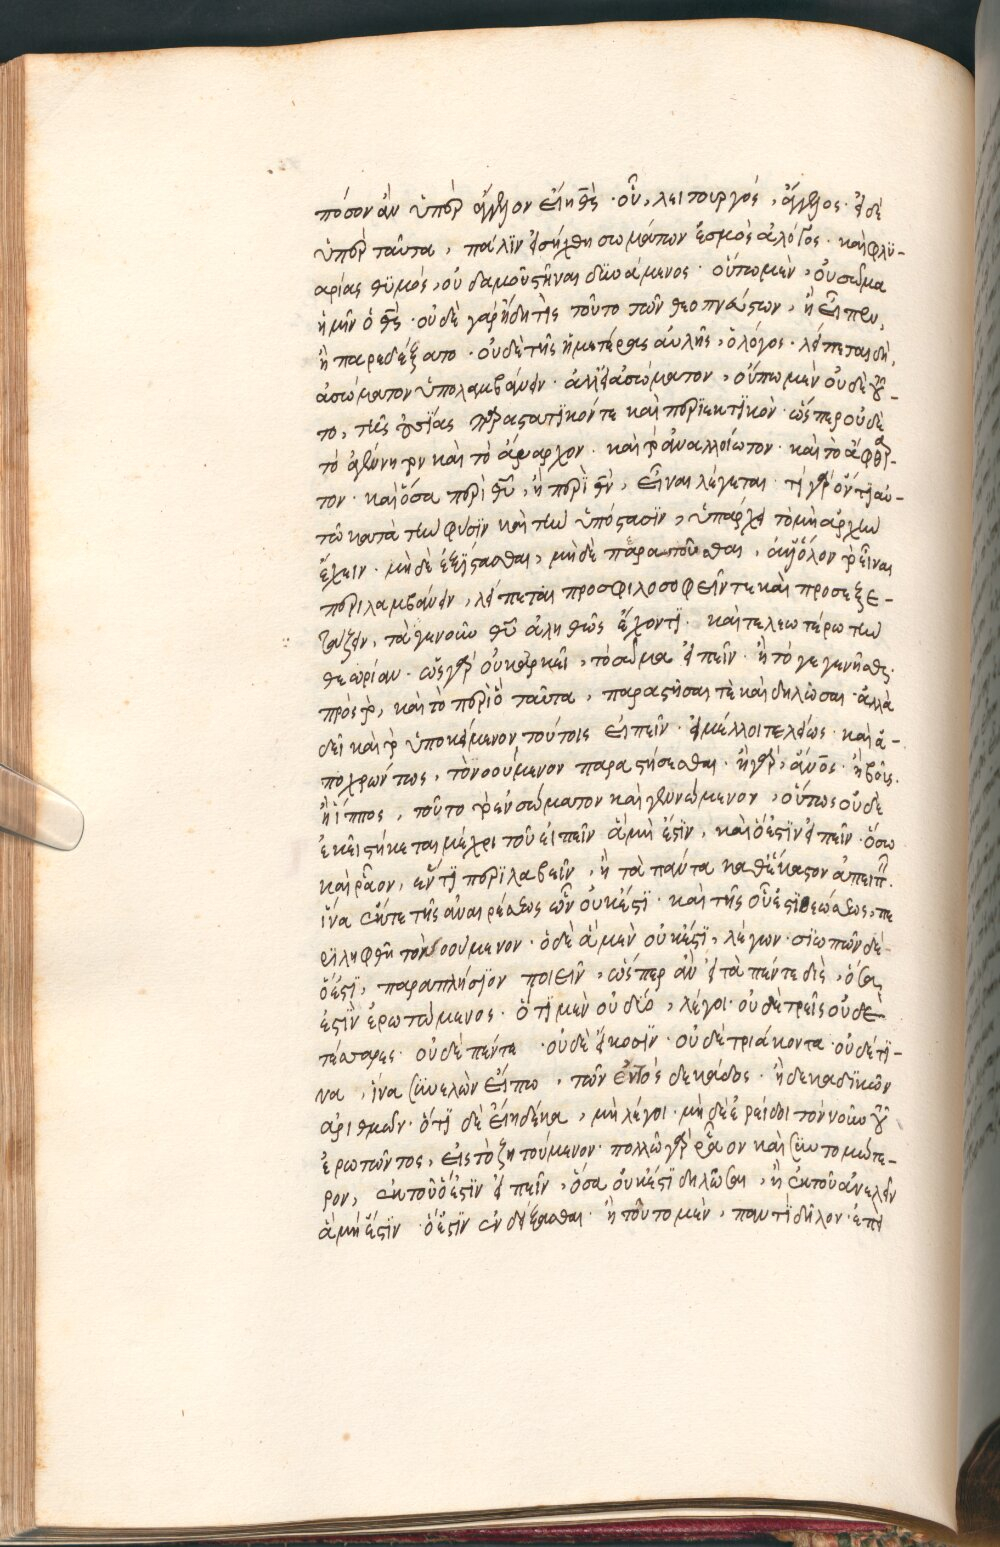 πόσον ἂν ὑπὲρ ἄγγελον εἴη θς· οὗ, λειτουργός, ἄγγελος· εἰ δὲ
ὑπὲρ ταῦτα, πάλϊν εἰσήχθη σωμάτων ἑσμὸς ἄλογος· καὶ φλϋ-
αρίας θϋμός, οὐδαμοῦ στῆναι δϋνάμενος· οὕτω μὲν, οὐ σῶμα
ἡμῖν ὁ θς· οὐδὲ γὰρ ἤδη τὶς τοῦτο τῶν θεοπνεύστων, ἢ εἶπεν,
ἢ παρεδέξατο· οὐδὲ τῆς ἡμετέρας αὐλῆς, ὁ λόγος· λείπεται δὴ,
ἀσώματον ὑπολαμβάνειν· ἀλλ' εἰ ἀσώματον, οὔπω μὲν οὐδὲ τοῦ-
το, τῆς οὐσίας παραστατϊκόν τε καὶ περϊεκτϊκὸν· ὥσπερ οὐδὲ
τὸ ἀγέννητον καὶ τὸ ἄναρχον· καὶ τὸ ἀναλλοίωτον· καὶ τὸ ἄφθαρ-
τον· καὶ ὅσα περὶ θῦ, ἢ περὶ θν, εἶναι λέγεται· τί γὰρ ὄντϊ αὐ-
τῶ κατὰ τὴν φύσϊν καὶ τὴν ὑπόστασϊν, ὑπάρχει τὸ μὴ ἀρχὴν
ἔχειν· μὴ δὲ ἐξίστασθαι, μὴ δὲ περατοῦσθαι, ἀλλ' ὅλον τὸ εἶναι
περιλαμβάνειν, λείπεται προσφιλοσοφεῖν τε καὶ προσεξε-
τάζειν, τὰ γε νοῦν θῦ ἀληθῶς ἔχοντϊ· καὶ τελεωτέρω τὴν
θεωρίαν· ὡς γὰρ οὐκ ἀρκεῖ, τὸ σῶμα εἰπεῖν· ἢ τό γεγενῆσθαι·
πρὸς τὸ, καὶ τὸ περὶ ὃ ταῦτα, παραστῆσαι τὲ καὶ δηλῶσαι· ἀλλὰ
δεῖ καὶ τὸ ὑποκείμενον τούτοις εἰπεῖν· εἰ μέλλοι τελείως· καὶ ἀ-
ποχρώντως, τὸ νοούμενον παραστήσεσθαι· ἢ γὰρ, ἄνος· ἢ βοῦς·
ἢ ἵππος, τοῦτο τὸ ἐνσώματον καὶ γεννώμενον, οὕτως οὐδὲ
ἐκεῖ στήσεται μέχρι τοῦ εἰπεῖν ἃ μὴ ἐστϊν, καὶ ὅ ἐστϊν εἰπεῖν· ὅσω
καὶ ρᾶον, ἕν τϊ περϊλαβεῖν, ἢ τὰ πάντα καθέκαστον ἀπειπεῖν·
ἵνα ἔκ τε τῆς ἀναιρέσεως ὧν οὐκ ἔστϊ· καὶ τῆς οὗ ἐστϊ θέσεως, πε
ρϊληφθῆ τὸ νοούμενον· ὁ δὲ ἃ μὲν οὐκ ἔστϊ, λέγων· σϊωπῶν δὲ
ὅ ἐστϊ, παραπλήσϊον ποιεῖν, ὥσπερ ἂν εἰ τὰ πέντε δὶς, ὅσα
ἐστϊν ἐρωτώμενος· ὅτϊ μὲν οὐ δύο, λέγοι· οὐδὲ τρεῖς οὐδὲ
τέσσαρες· οὐδὲ πέντε· οὐδὲ εἴκοσϊν· οὐδὲ τριάκοντα· οὐδέ τϊ-
να, ἵνα συνελὼν εἴπω, τῶν ἐντὸς δεκάδος· ἢ δεκαδϊκῶν
ἀριθμῶν· ὅτϊ δὲ εἴη δέκα, μὴ λέγοι· μὴ δὲ ἐρείδοι τὸν νοῦν τοῦ
ἐρωτῶντος, εἰς τὸ ζητούμενον· πολλῶ γὰρ ρᾶον καὶ σϋντομώτε-
ρον, ἐκ τοῦ ὅ ἐστϊν εἰπεῖν, ὅσα οὐκ ἔστϊ δηλῶσαι, ἢ ἐκ τοῦ ἀνελεῖν
ἃ μὴ ἔστϊν· ὅ ἔστϊν ἐνδείξασθαι· ἢ τοῦτο μὲν, παντὶ δῆλον· ἐπεὶ